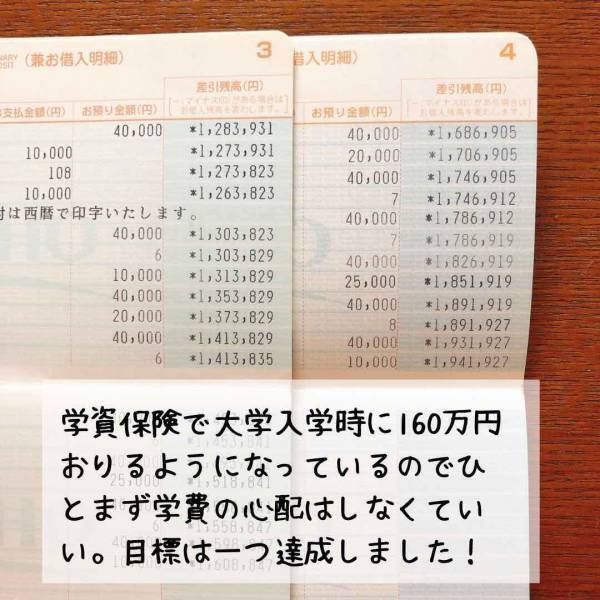 (兼お借入明細) 3
差引残高(円)
支払金額(円) お預り金額(円)
40,000 *1,283,931
10,000 *1,273,931
108 *1,273,823
10,000 *1,263,823
付は西暦で印字いたします。
40,000 *1,303,823
6 *1,303,829
10,000 *1,313,829
40,000 *1,353,829
20,000 *1,373,829
40,000 *1,413,829
6 *1,413,835
借入明細) 4
差引残高(円)
お預り金額(円)
40,000 *1,686,905
20,000 *1,706,905
40,000 *1,746,905
7 *1,746,912
40,000 *1,786,912
7 *1,786,919
40,000 *1,826,919
25,000 *1,851,919
40,000 *1,891,919
8 *1,891,927
40,000 *1,931,927
10,000 *1,941,927
学資保険で大学入学時に160万円
おりるようになっているのでひ
とまず学費の心配はしなくてい
い。目標は一つ達成しました！